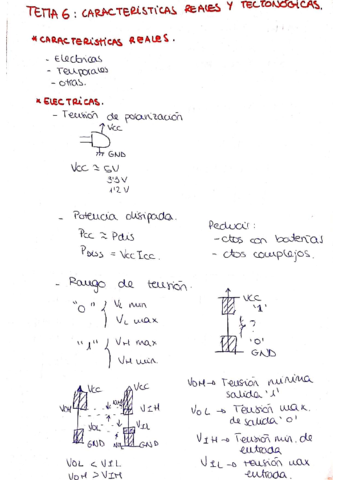 TEMA 6: CARACTERÍSTICAS REALES Y TECTONÓGICAS.
* CARACTERÍSTICAS REALES.
- Eléctricas
- Temporales
- otras.
* ELÉCTRICAS.
- Tensión de polarización
Vcc
GND
Vcc ≃ 5V
3'3V
1'2V
- Potencia disipada.
Pcc ≃ Pdis
Pdiss = Vcc Icc.
Reducir:
- ctos con baterías
- ctos complejos.
- Rango de tensión.
"0" { VL min
VL max
"1" { VH max
VH min.
VCC
'1'
?
'0'
GND
Vcc Vcc
VOH VIH
VOL VIL
GND GND
VOL < VIL
VOH > VIH
VOH → Tensión mínima
salida '1'
VOL → Tensión max.
de salida '0'
VIH → Tensión min. de
entrada
VIL → tensión max
entrada